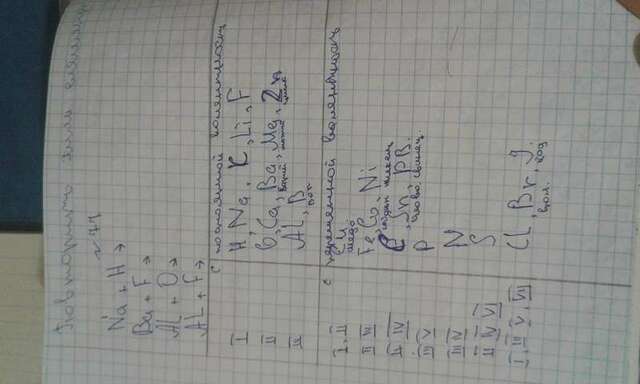 Повторить
~ 77
Na + H →
Ba + F →
AL + O →
AL + F →
с постоянной валентностью
I H, Na, K, Li, F
II O, Ca, Ba, Mg, Zn
барий цинк
III AL, B
бор
с переменной валентность
I, II Cu
медь
II III Fe, Co, Ni
II IV C, Sn, PB
олово, свинец
III V P
III IV N
II IV VI S
I, III V, VII CL, Br, J
йод